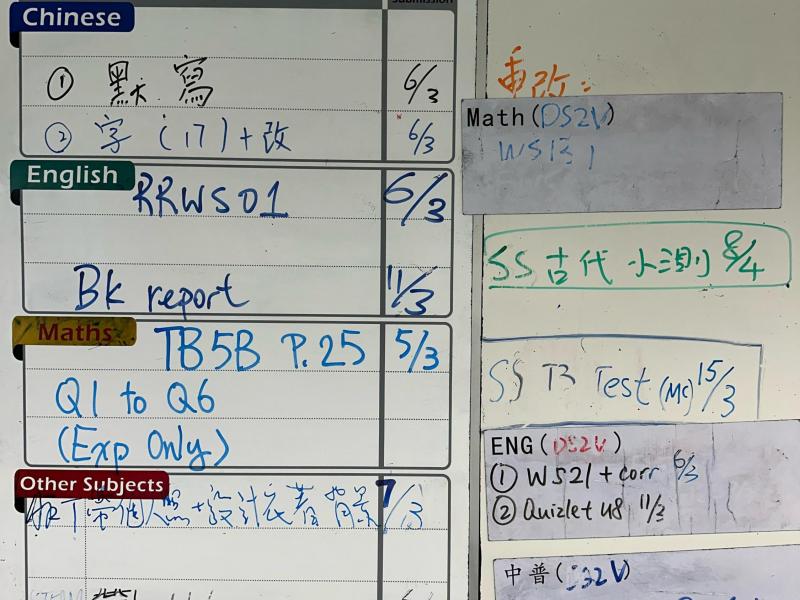 Submission
Chinese
① 默 寫 6/3
② 字 (17) + 改 6/3
English
RRWS01 6/3
Bk report 11/3
Maths
TB5B P.25 5/3
Q1 to Q6
(Exp Only)
Other Subjects
個人照+設計衣著背景 7/3
重改:
Math (DS2V)
SS 古代 小測 8/4
SS TB Test (MC) 15/3
ENG (DS2V)
① WS21 + corr 6/3
② Quizlet u8 11/3
中普 (S2V)